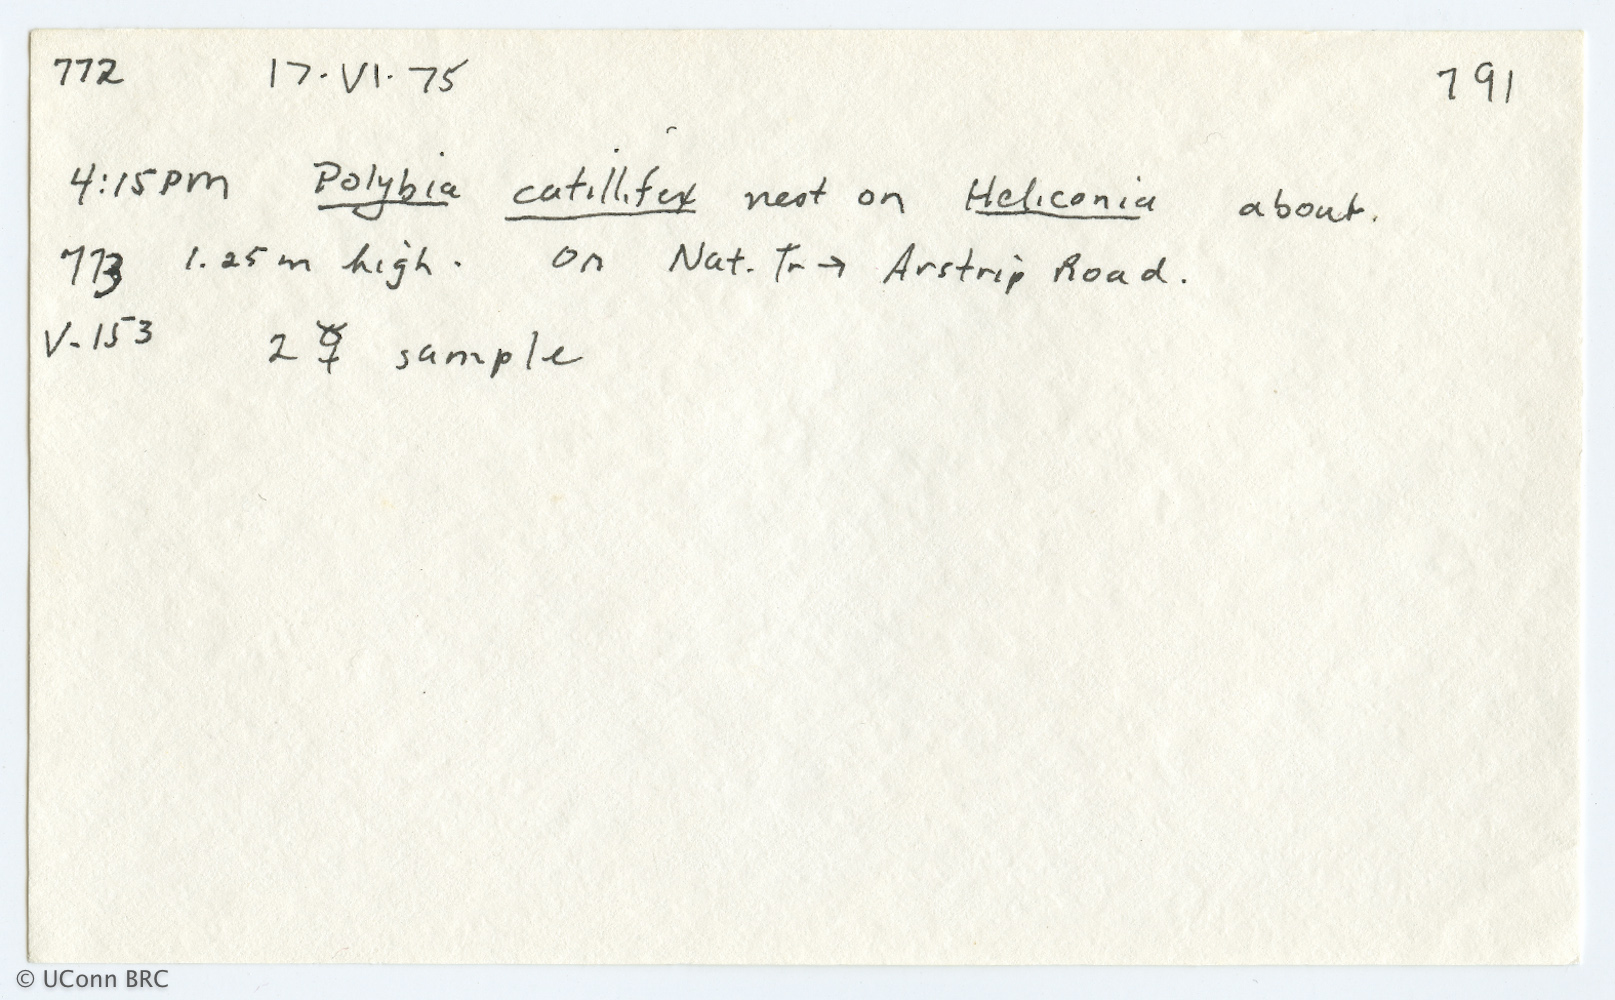 772 17·VI·75 791
4:15pm Polybia catillifex nest on Heliconia about.
773 1.25m high. On Nat. Tr → Arstrip Road.
V-153 2 ☿ sample
© UConn BRC